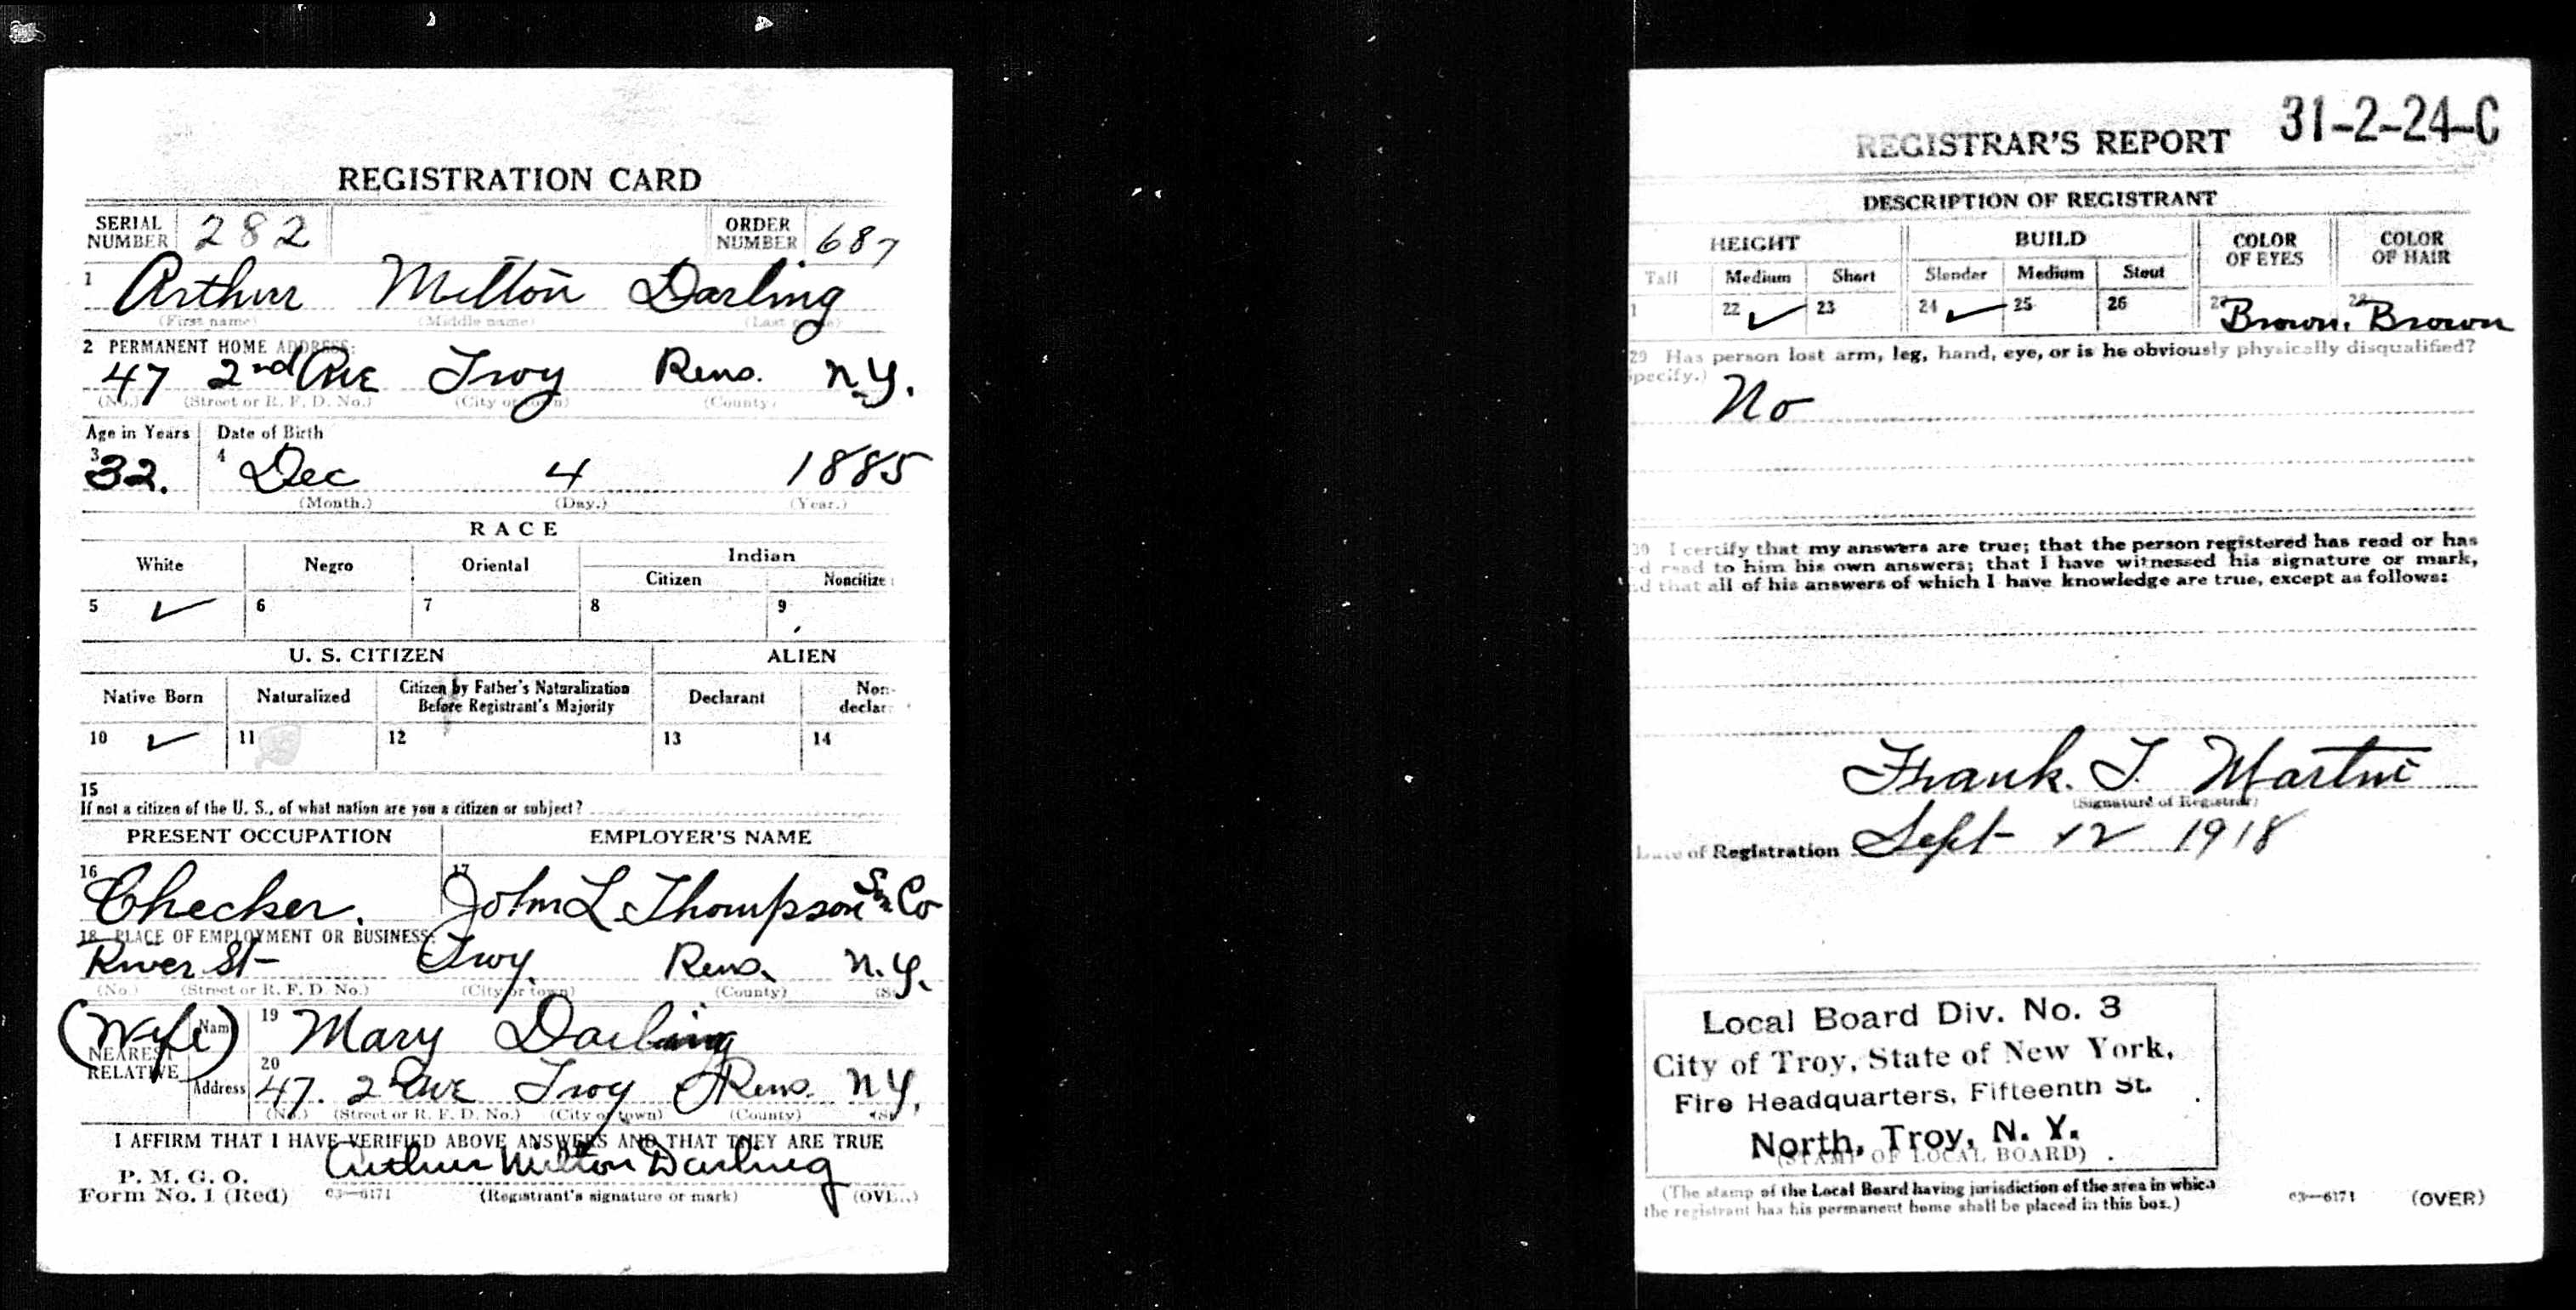 REGISTRATION CARD
SERIAL NUMBER 282 ORDER NUMBER 687
1 Arthur Milton Darling
(First name) (Middle name) (Last name)
2 PERMANENT HOME ADDRESS:
47 2nd Ave Troy Rens. N.Y.
(No.) (Street or R. F. D. No.) (City or town) (County)
Age in Years Date of Birth
3 32. 4 Dec 4 1885
(Month.) (Day.) (Year.)
RACE
White Negro Oriental Indian
Citizen Noncitize
5 ✓ 6 7 8 9
U. S. CITIZEN ALIEN
Native Born Naturalized Citizen by Father's Naturalization Before Registrant's Majority Declarant Non-declar
10 ✓ 11 12 13 14
15
If not a citizen of the U. S., of what nation are you a citizen or subject?
PRESENT OCCUPATION EMPLOYER'S NAME
16 Checker. 17 John L. Thompson Son Co
18 PLACE OF EMPLOYMENT OR BUSINESS:
River St Troy. Rens. N.Y.
(No.) (Street or R. F. D. No.) (City or town) (County) (S
(Wife) Nam 19 Mary Darling
NEAREST RELATIVE
Address 20 47. 2 Ave Troy Rens. N.Y.
(No.) (Street or R. F. D. No.) (City or town) (County) (S
I AFFIRM THAT I HAVE VERIFIED ABOVE ANSWERS AND THAT THEY ARE TRUE
P. M. G. O.
Form No. 1 (Red) Arthur Milton Darling
03—6171 (Registrant's signature or mark) (OV
REGISTRAR'S REPORT 31-2-24-C
DESCRIPTION OF REGISTRANT
HEIGHT BUILD COLOR OF EYES COLOR OF HAIR
Tall Medium Short Slender Medium Stout
1 22 ✓ 23 24 ✓ 25 26 27 Brown. 28 Brown
29 Has person lost arm, leg, hand, eye, or is he obviously physically disqualified?
pecify.)
No
30 I certify that my answers are true; that the person registered has read or has
d read to him his own answers; that I have witnessed his signature or mark,
d that all of his answers of which I have knowledge are true, except as follows:
Frank. J. Martin
(Signature of Registrar)
Date of Registration Sept 12 1918
Local Board Div. No. 3
City of Troy, State of New York,
Fire Headquarters, Fifteenth St.
North, Troy, N. Y.
(STAMP OF LOCAL BOARD)
(The stamp of the Local Board having jurisdiction of the area in which
the registrant has his permanent home shall be placed in this box.)
03—6171 (OVER)